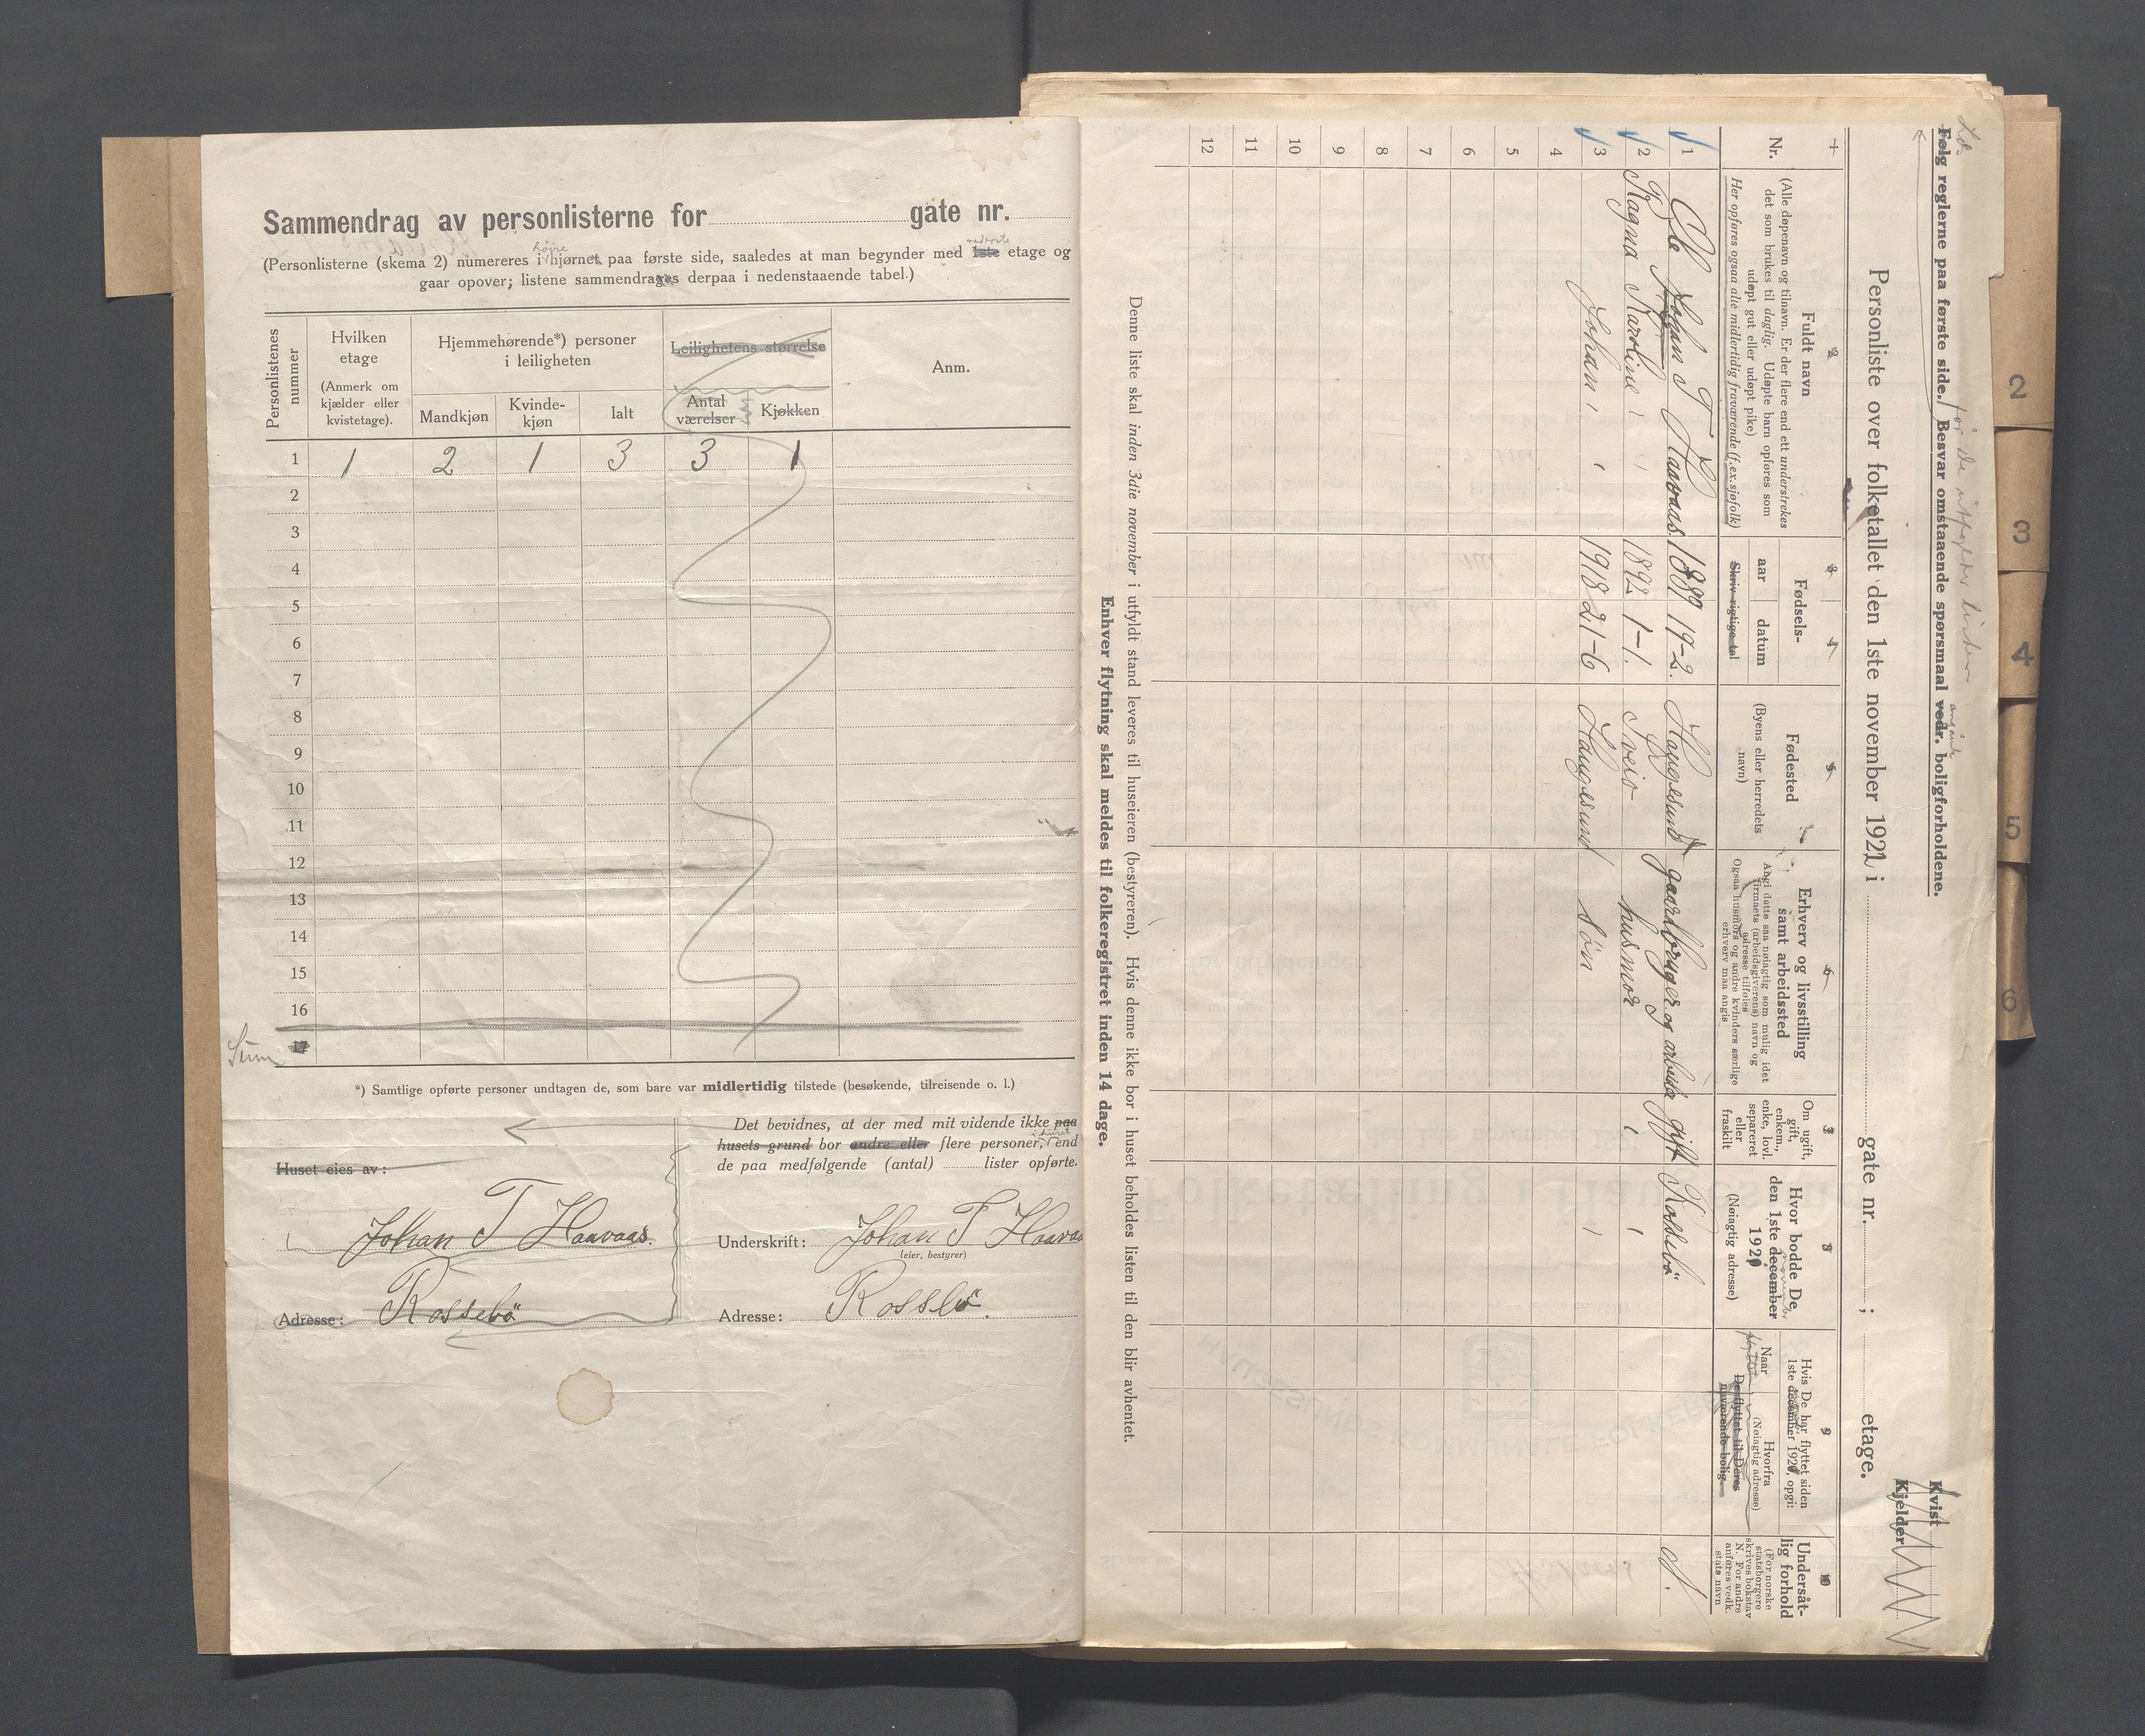 Sammendrag av personlisterne for gate nr.
(Personlisterne (skema 2) numereres i højre hjørnet paa første side, saaledes at man begynder med nederste 1ste etage og
gaar opover; listene sammendrages derpaa i nedenstaaende tabel.)
Personlistenes nummer
Hvilken etage
(Anmerk om kjælder eller kvistetage).
Hjemmehørende*) personer i leiligheten
Mandkjøn
Kvinde-kjøn
Ialt
Leilighetens størrelse
Antal værelser
Kjøkken
Anm.
1 1 2 1 3 3 1
2
3
4
5
6
7
8
9
10
11
12
13
14
15
16
Sum 17
*) Samtlige opførte personer undtagen de, som bare var midlertidig tilstede (besøkende, tilreisende o. l.)
Det bevidnes, at der med mit vidende ikke paa
husets grund bor andre eller flere personer, i huset end
de paa medfølgende (antal) lister opførte.
Huset eies av:
Johan T Haavaas.
Adresse: Rossebö
Underskrift: Johan T Haavaas
(eier, bestyrer)
Adresse: Rossbö.
Følg reglerne paa første side. Besvar omstaaende spørsmaal vedr. boligforholdene.
før de utfylder listen
Kvist
Kjelder
Personliste over folketallet den 1ste november 1921 i gate nr. ; etage.
Nr.
2
Fuldt navn
(Alle døpenavn og tilnavn. Er der flere end ett understrekes
det som brukes til daglig. Udøpte barn opføres som
udøpt gut eller udøpt pike)
Her opføres ogsaa alle midlertidig fraværende (f.ex. sjøfolk)
3 4
Fødsels-
aar
datum
Skriv rigtige tal
5
Fødested
(Byens eller herredets navn)
6
Erhverv og livsstilling
samt arbeidssted
Angi dette saa nøiagtig som mulig idet
firmaets (arbeidsgiverens) navn og
adresse tilføies
Ogsaa husmors og andre kvinders særlige
erhverv maa angis
Om ugift,
gift,
enkem.,
enke, lovl.
separeret
eller
fraskilt
8
Hvor bodde De
den 1ste december
1920
(Nøiagtig adresse)
9
Hvis De har flyttet siden
1ste december 1920, opgi:
Naar
flyttet
Hvorfra
(Nøiagtig adresse)
De flyttet til Deres
nuværende bolig
10
Undersåt-
lig forhold
(For norske
statsborgere
skrives bokstav
N. For andre
anføres vedk.
stats navn
1 Ole Johan T Haavaas. 1889 19-2. Haugesund gaardbruger og arbeider gift Rossebö N.
2 Ragna Karoline 1892 1-1. Sveio husmor
3 Johan 1918 21-6 Haugesund Søn
4
5
6
7
8
9
10
11
12
Denne liste skal inden 3die november i utfyldt stand leveres til huseieren (bestyreren). Hvis denne ikke bor i huset beholdes listen til den blir avhentet.
Enhver flytning skal meldes til folkeregistret inden 14 dage.
2
3
4
5
6